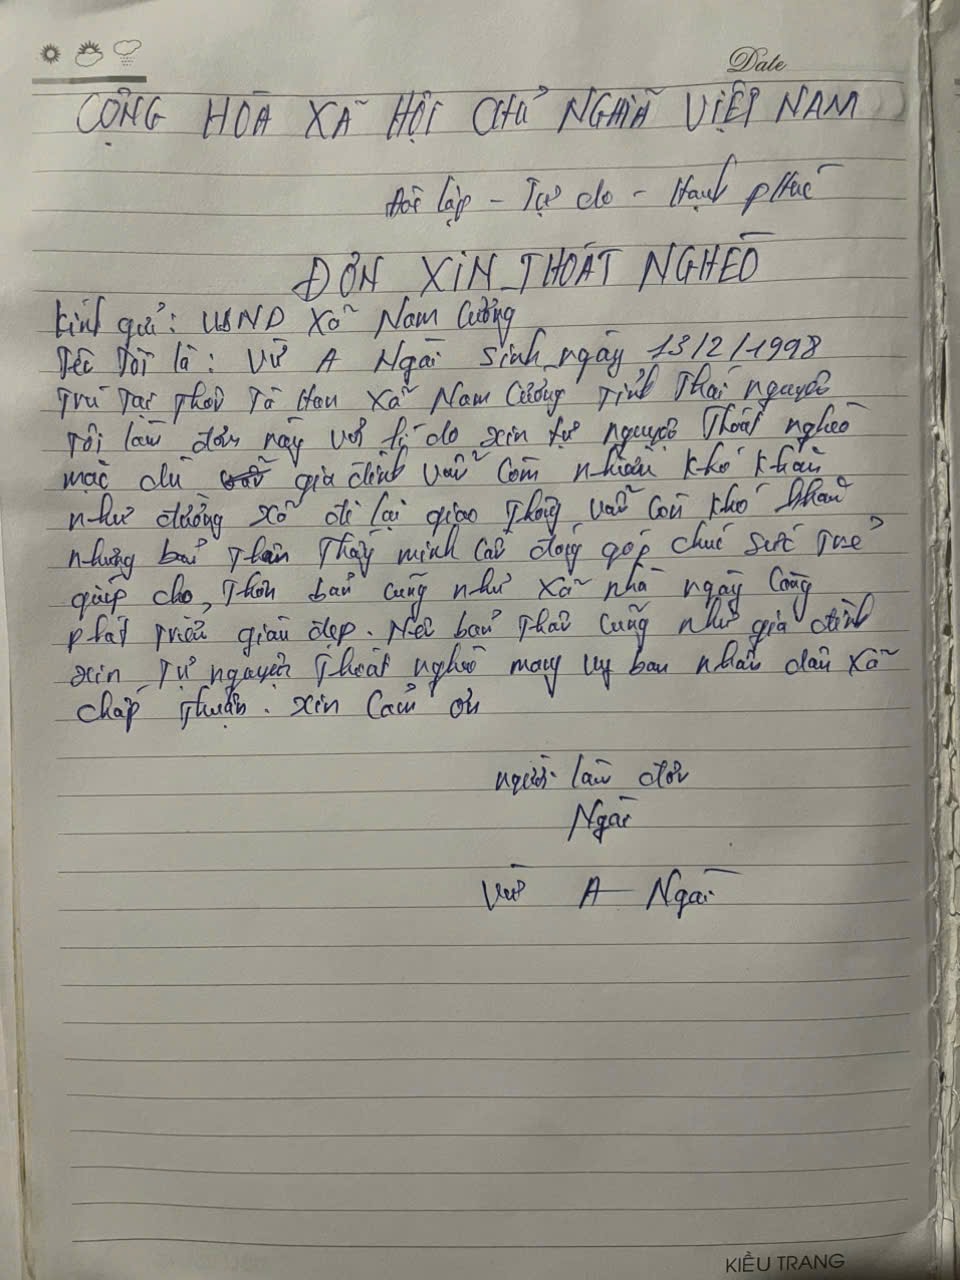 Date
CỘNG HÒA XÃ HỘI CHỦ NGHĨA VIỆT NAM
Độc lập - Tự do - Hạnh phúc
ĐƠN XIN THOÁT NGHÈO
Kính gửi: UBND Xã Nam Cường
Tên tôi là: Vừ A Ngài sinh ngày 13/2/1998
Trú tại thôn Tà Han xã Nam Cường tỉnh Thái nguyên
Tôi làm đơn này với lí do xin tự nguyện thoát nghèo
mặc dù gia đình vẫn còn nhiều khó khăn
như đường xá đi lại giao thông vẫn còn khó khăn
nhưng bản thân thấy mình cần đóng góp chút sức trẻ
giúp cho, thôn bản cũng như xã nhà ngày càng
phát triển giàu đẹp. Nên bản thân cũng như gia đình
xin tự nguyện thoát nghèo mong uỷ ban nhân dân xã
chấp thuận. xin cảm ơn
người làm đơn
Ngài
Vừ A Ngài
KIỀU TRANG